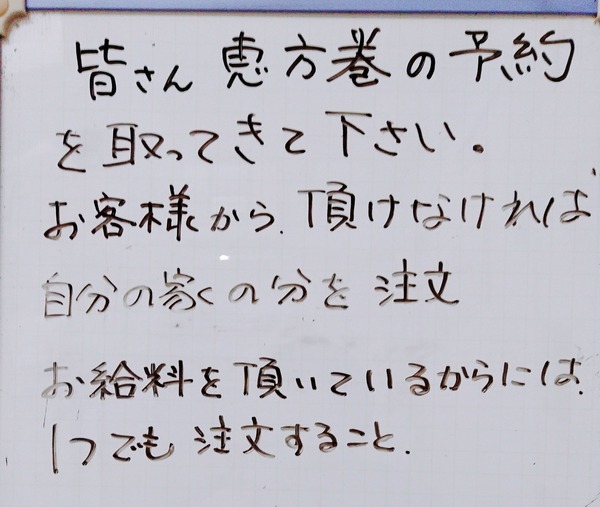 皆さん 恵方巻の予約
を取ってきて下さい。
お客様から、頂けなければ
自分の家くの分を 注文
お給料を頂いているからには、
1つでも 注文すること.